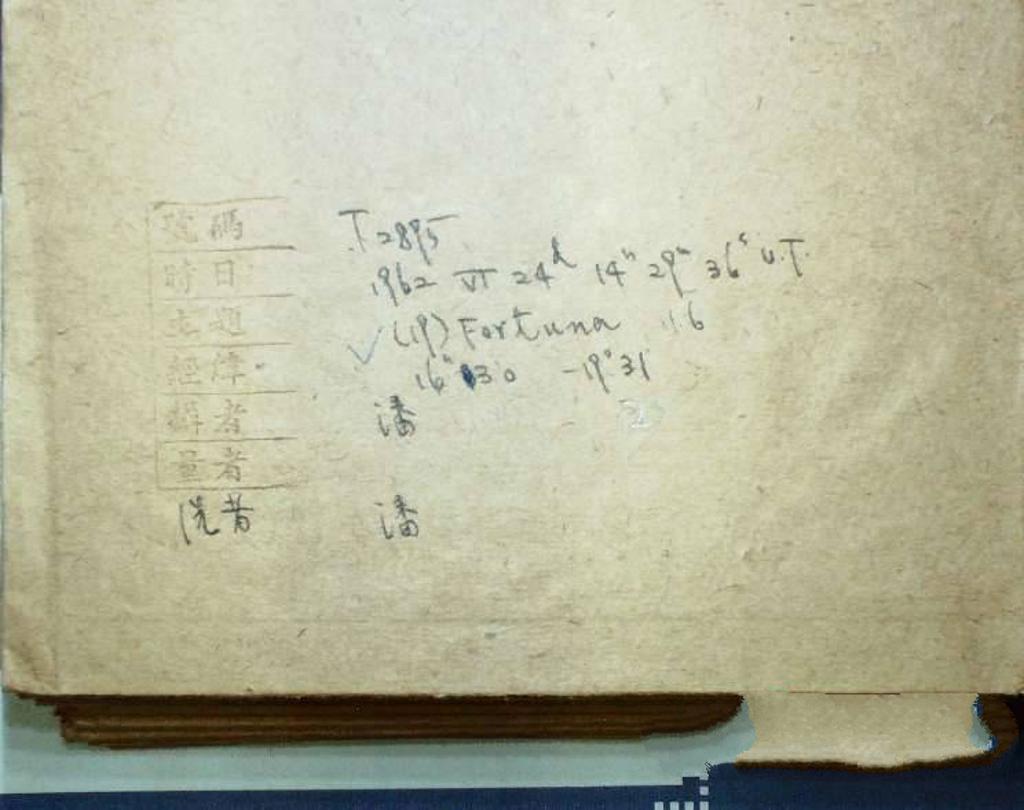 號碼 T 2895
時日 1962 VI 24d 14h 29m 36s U.T.
主題 (19) Fortuna 11.6
經緯 16h 30 -19°31
攝者 潘
量者
洗者 潘